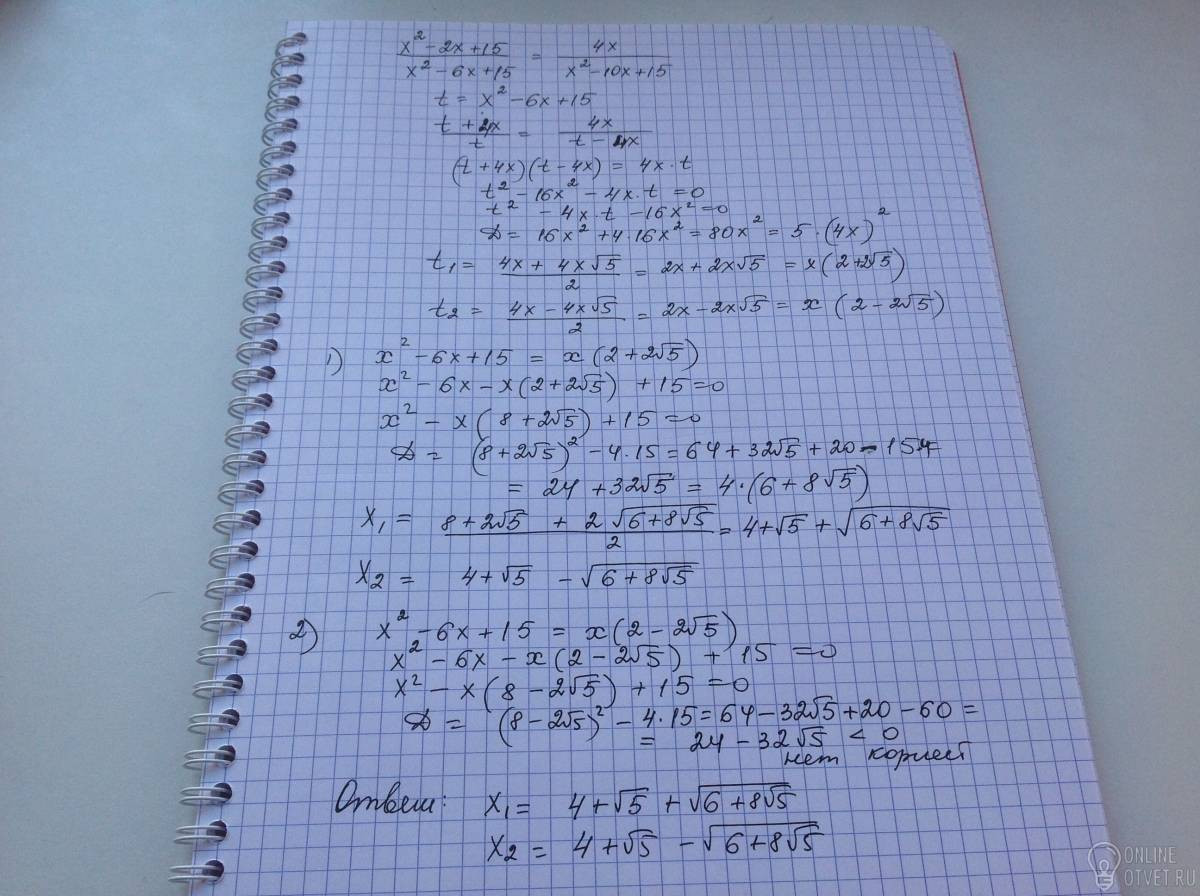 x² - 2x + 15 / x² - 6x + 15 = 4x / x² - 10x + 15
t = x² - 6x + 15
t + 4x / t = 4x / t - 4x
(t + 4x)(t - 4x) = 4x · t
t² - 16x² - 4x · t = 0
t² - 4x · t - 16x² = 0
D = 16x² + 4 · 16x² = 80x² = 5 · (4x)²
t₁ = 4x + 4x√5 / 2 = 2x + 2x√5 = x(2 + 2√5)
t₂ = 4x - 4x√5 / 2 = 2x - 2x√5 = x(2 - 2√5)
1) x² - 6x + 15 = x(2 + 2√5)
x² - 6x - x(2 + 2√5) + 15 = 0
x² - x(8 + 2√5) + 15 = 0
D = (8 + 2√5)² - 4 · 15 = 64 + 32√5 + 20 - 15·4
= 24 + 32√5 = 4 · (6 + 8√5)
x₁ = 8 + 2√5 + 2√(6 + 8√5) / 2 = 4 + √5 + √(6 + 8√5)
x₂ = 4 + √5 - √(6 + 8√5)
2) x² - 6x + 15 = x(2 - 2√5)
x² - 6x - x(2 - 2√5) + 15 = 0
x² - x(8 - 2√5) + 15 = 0
D = (8 - 2√5)² - 4 · 15 = 64 - 32√5 + 20 - 60 =
= 24 - 32√5 < 0
нет корней
Ответ: x₁ = 4 + √5 + √(6 + 8√5)
x₂ = 4 + √5 - √(6 + 8√5)
ONLINE
OTVET.RU